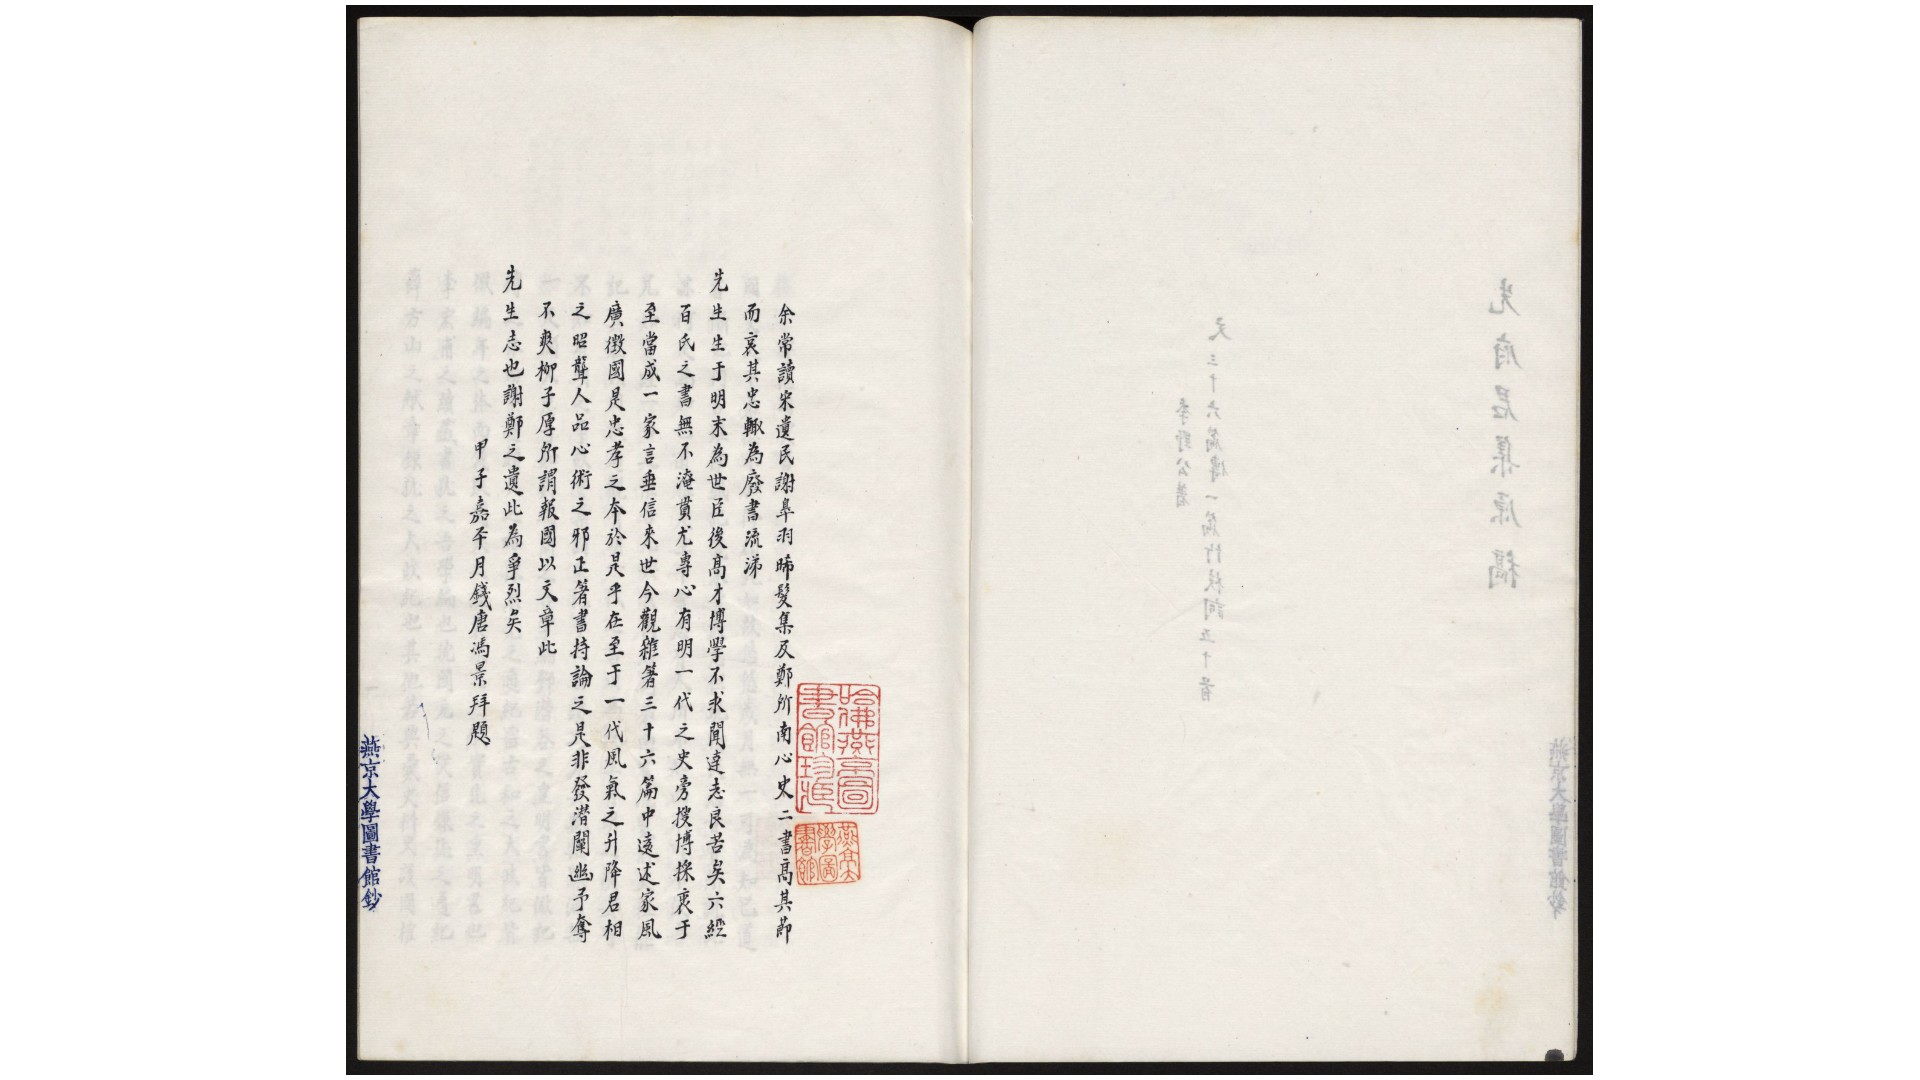 先府君集原稿
文三十六篇傳一篇竹枝詞五十首
季野公著
余常讀宋遺民謝臯羽晞髮集及鄭所南心史二書高其節
而哀其忠輙為廢書流涕
先生生于明末為世臣後高才博學不求聞達志良苦矣六經
百氏之書無不淹貫尤專心有明一代之史旁搜博採衷于
至當成一家言垂信來世今觀雜箸三十六篇中遠述家風
廣徵國是忠孝之本於是乎在至于一代風氣之升降君相
之昭聾人品心術之邪正箸書持論之是非發潛闡幽予奪
不爽柳子厚所謂報國以文章此
先生志也謝鄭之遺此為爭烈矣
甲子嘉平月錢唐馮景拜題
哈佛燕京圖書館珍藏
燕京大學圖書館
燕京大學圖書館鈔